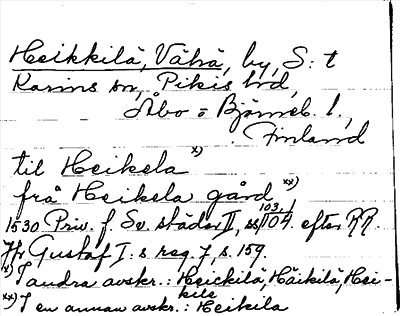 Heikkilä, Vähä, by, S:t
Karins sn, Pikis hd,
Åbo o Björneb. l.,
Finland
til Heikela x)
från Heikela gård xx)
1530 Priv. f. Sv. städer II, ss 103, 104. efter RR.
Hr Gustaf I:s reg. 7, s. 159.
x) I andra avskr.: Heickilä, Häikilä, Hei-
kile
xx) I en annan avskr.: Heikila